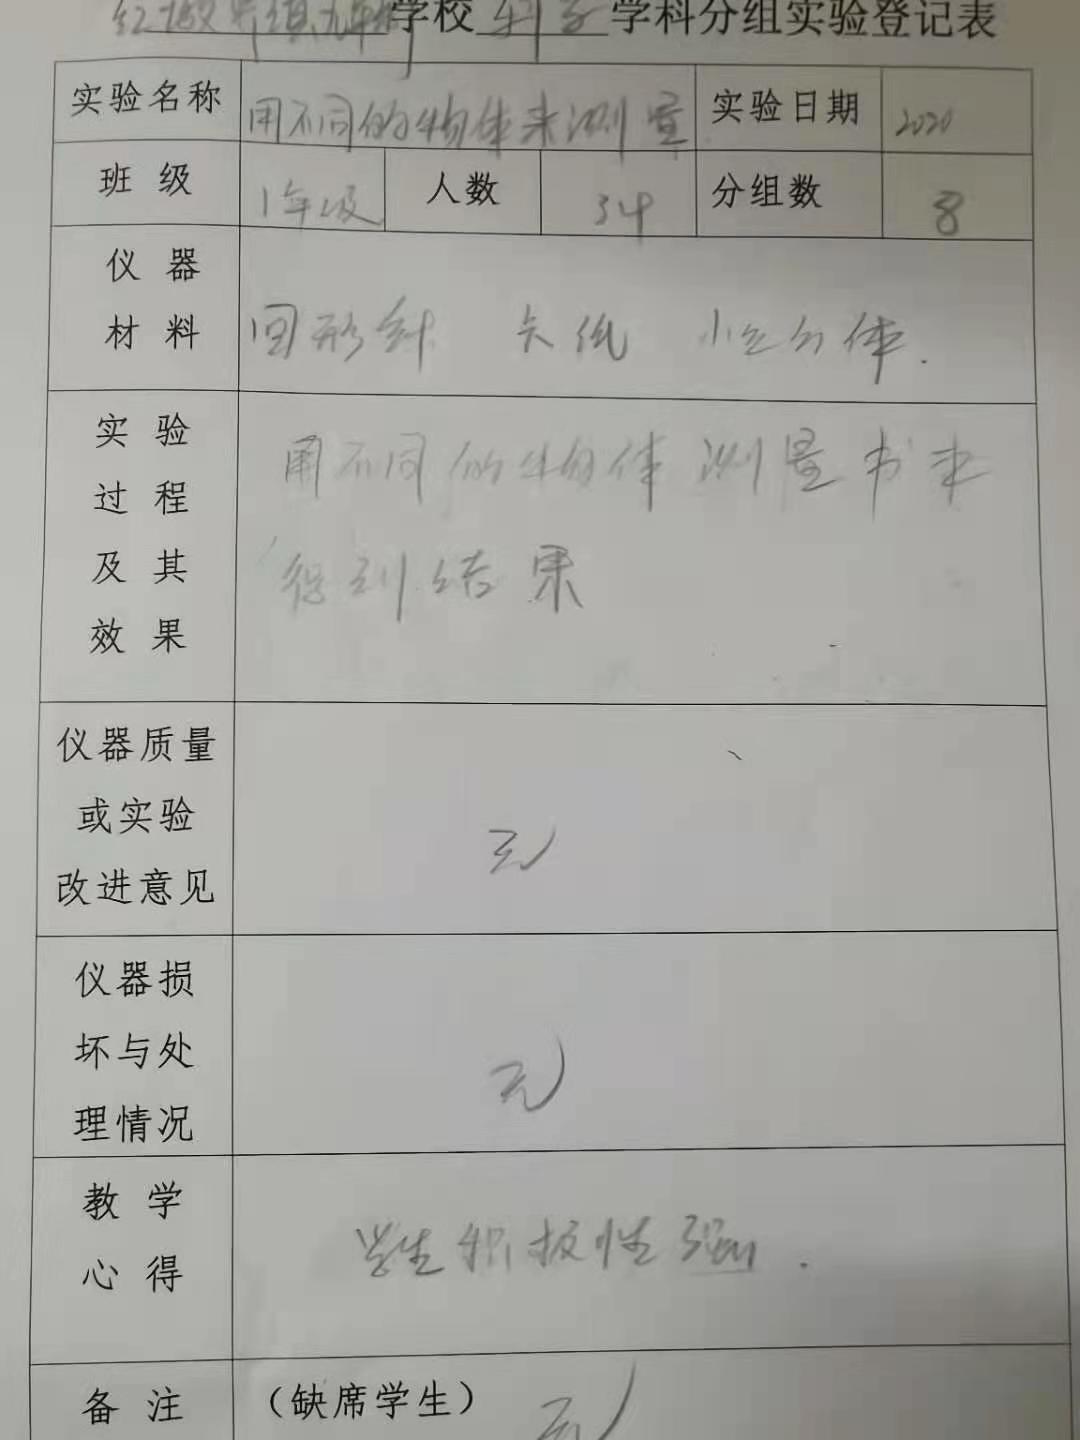 学校 科学 学科分组实验登记表
实验名称 用不同的物体来测量 实验日期 2020
班级 1年级 人数 34 分组数 8
仪器
材料 回形针 卡纸 小立方体.
实验
过程
及其
效果
用不同的物体测量书本
得到结果
仪器质量
或实验
改进意见
无
仪器损
坏与处
理情况
无
教学
心得
学生积极性强.
备注 (缺席学生) 无